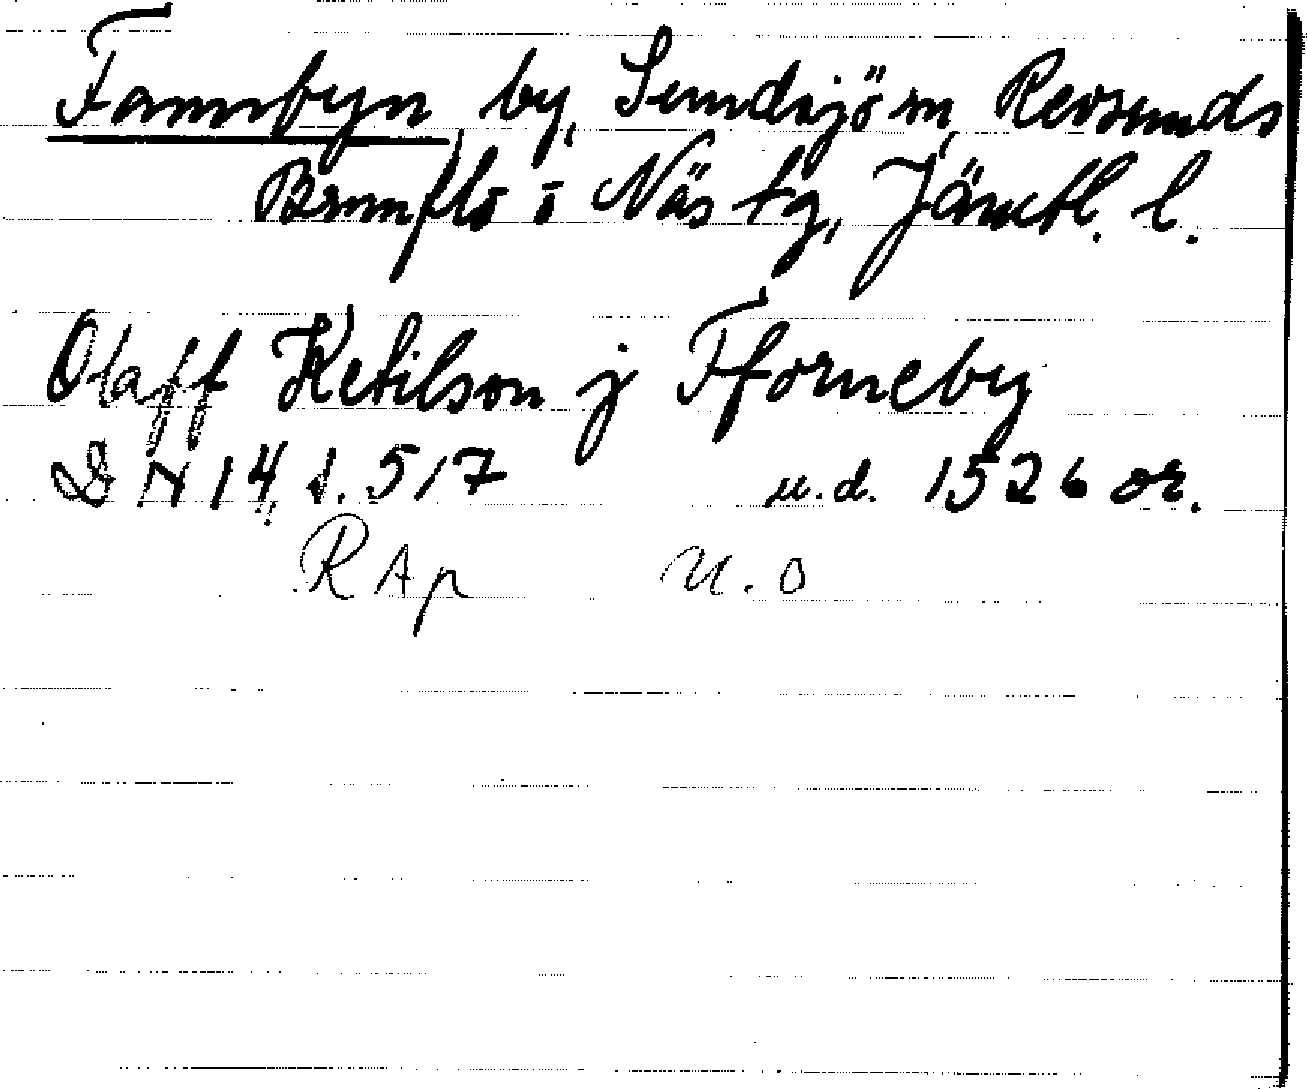 Fannbyn by, Sundsjö sn, Revsunds
Brunflo o Näs tg, Jämtl. l.
Olaff Ketilson j Fforneby
DN 14, s. 517 u.d. 1526 or.
RAp U.O